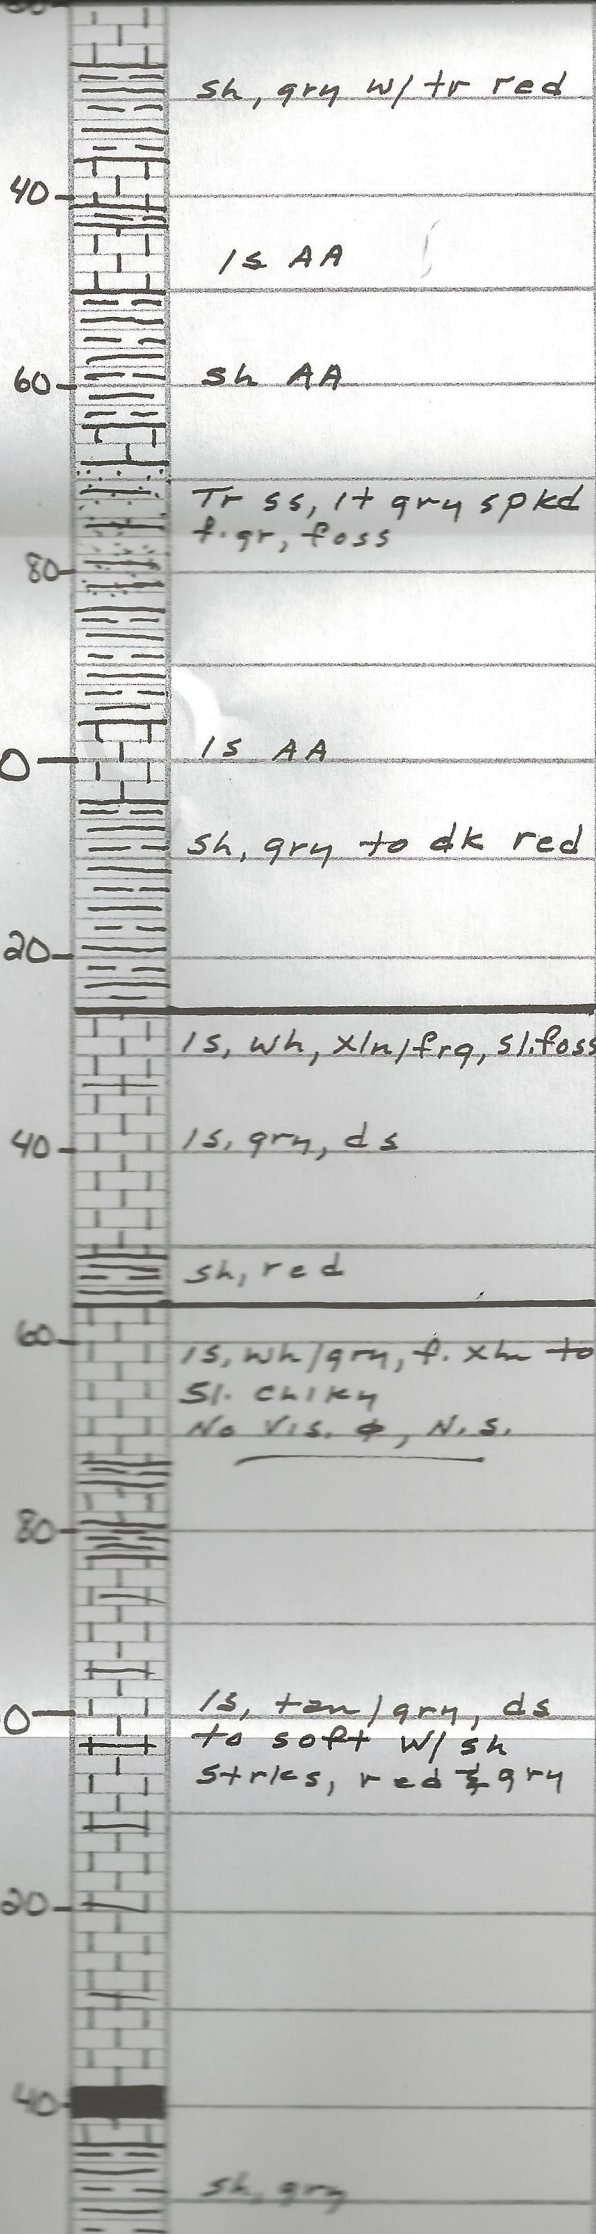 sh, gry w/ tr red
40
ls AA
60
sh AA
Tr ss, lt gry spkd
f.gr, foss
80
0
ls AA
sh, gry to dk red
20
ls, wh, xln/frg, sl.foss
40
ls, gry, ds
sh, red
60
ls, wh/gry, f. xln to
Sl. chlky
No Vis. ϕ, N.S.
80
ls, tan/gry, ds
0
to soft w/ sh
strks, red & gry
20
40
sh, gry